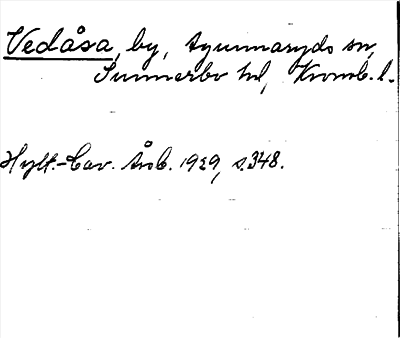 Vedåsa, by, Agunnaryds sn,
Sunnerbo hd, Kronob. l.
Hylt.-Cav. Årsb. 1929, s. 348.